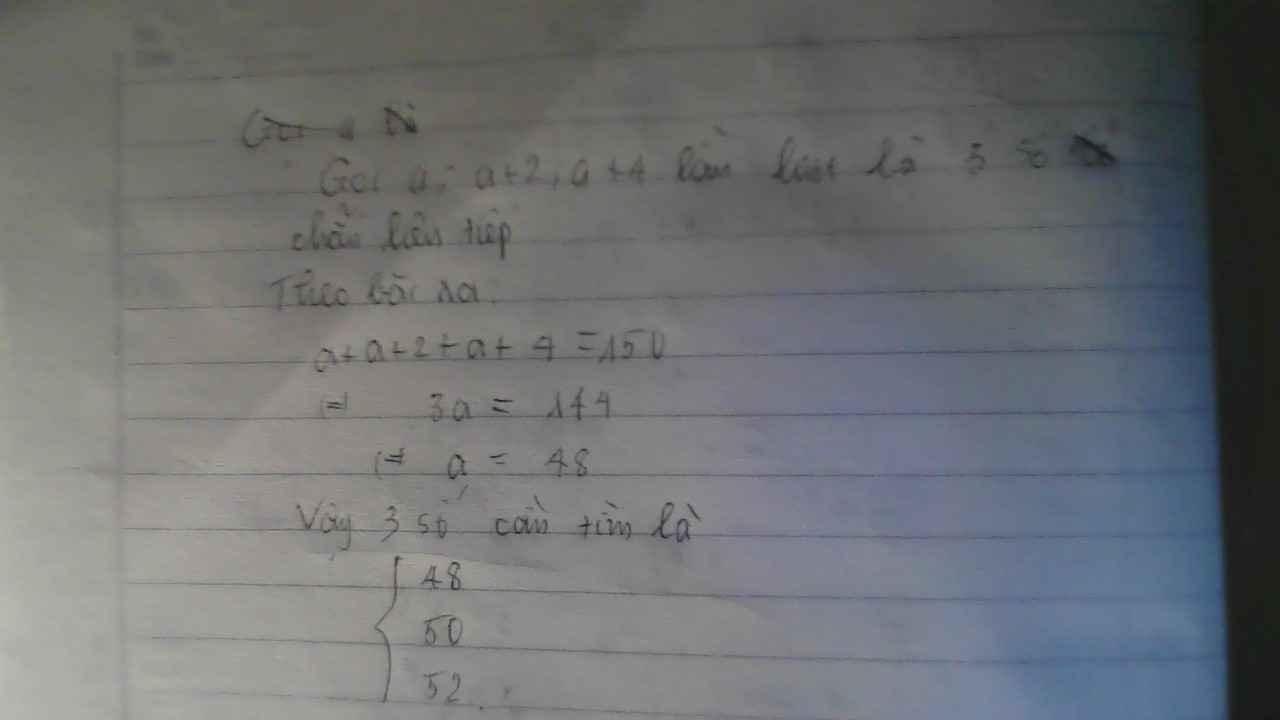 Gọi a; a+2, a+4 lần lượt là 3 số
chẵn liên tiếp
Theo bài ra
a+a+2+a+4=150
⇔ 3a = 144
⇔ a = 48
Vậy 3 số cần tìm là
48
50
52.